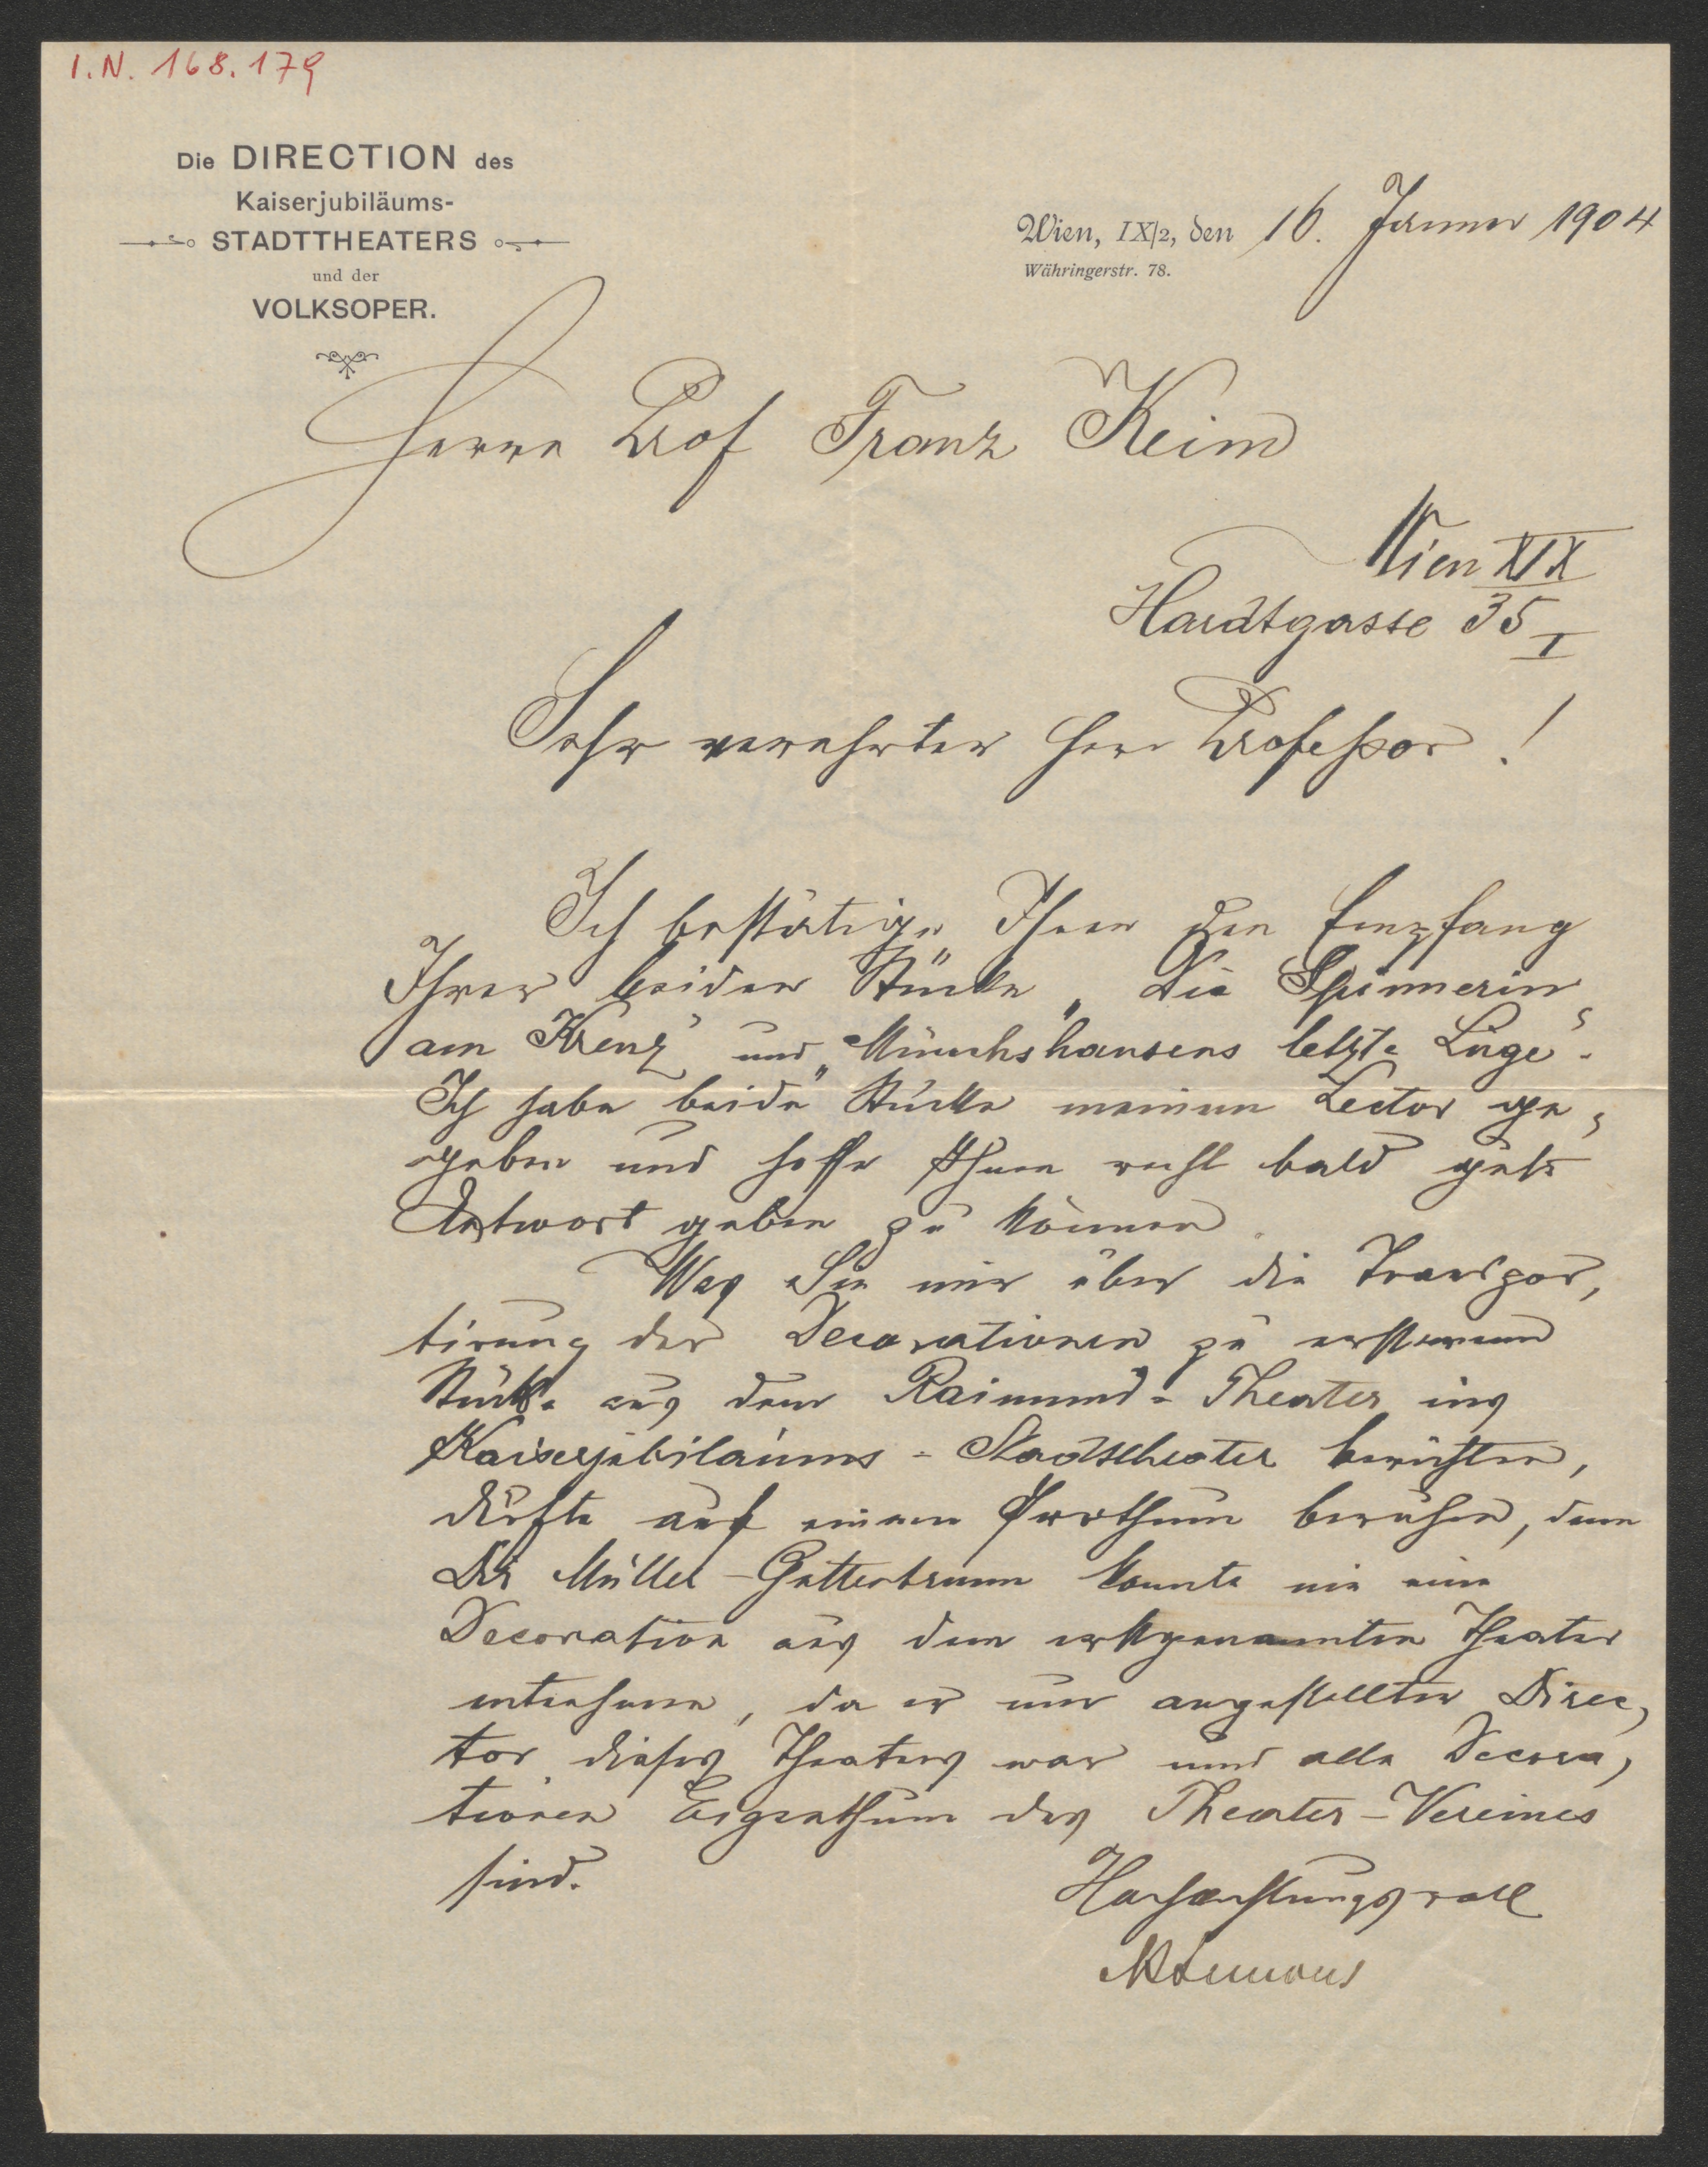 I.N. 168.179
Die DIRECTION des
Kaiserjubiläums-
STADTTHEATERS
und der
VOLKSOPER.
Wien, IX/2, den 16. Jänner 1904
Währingerstr. 78.
Herrn Prof Franz Keim
Wien XIX
Hardtgasse 35
I
Sehr verehrter Herr Professor!
Ich bestätige Ihnen den Empfang
Ihrer beiden Stücke „Die Spinnerin
am Kreuz" und „Münchshausens letzte Lüge".
Ich habe beide Stücke meinem Lector ge-
geben und hoffe Ihnen recht bald gute
Antwort geben zu können.
Was Sie mir über die Transpor-
tirung der Decorationen zu ersterem
Stücke aus dem Raimund-Theater ins
Kaiserjubiläums-Stadttheater berichten,
dürfte auf einem Irrthum beruhen, denn
Dir Müller-Guttenbrunn konnte nie eine
Decoration aus dem erstgenannten Theater
entnehmen, da er nur angestellter Direc-
tor dieses Theaters war und alle Decora-
tionen Eigenthum des Theater-Vereines
sind.
Hochachtungsvoll